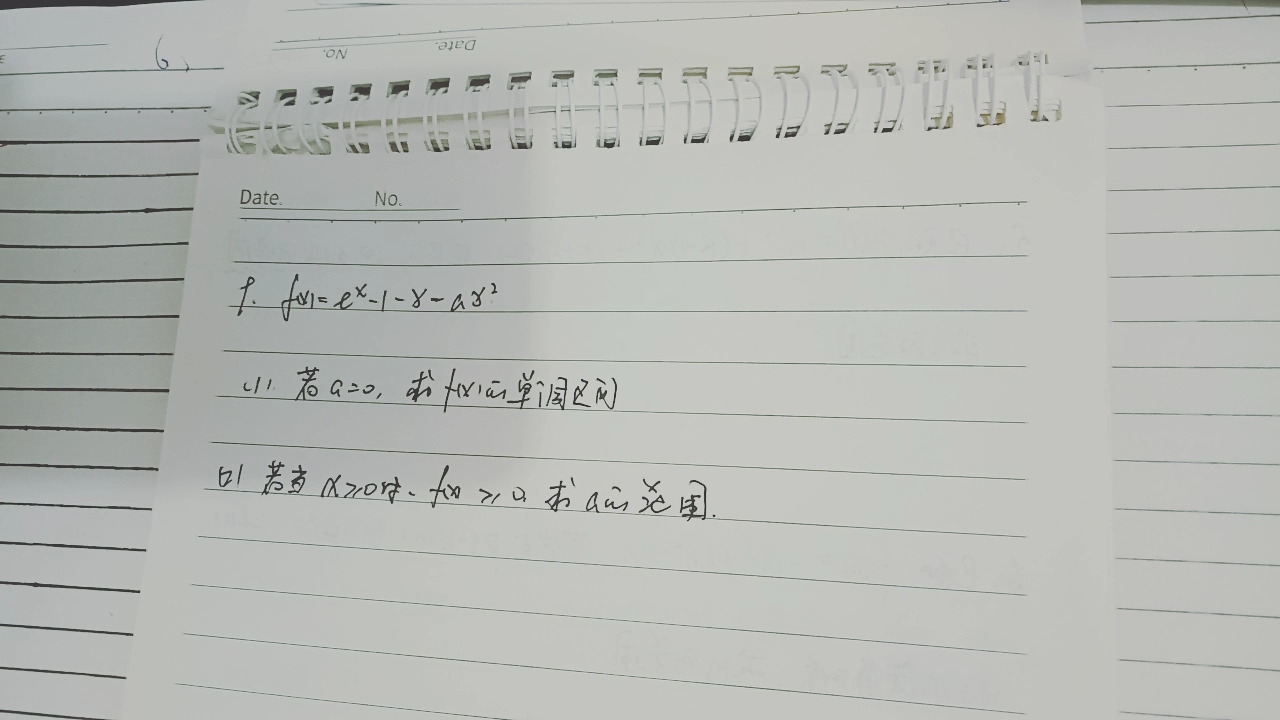 6、
No. Date.
Date. No.
1. f(x)=e^x-1-x-ax²
(1). 若a=0, 求f(x)的单调区间
(2) 若当x≥0时、f(x)≥0. 求a的范围.